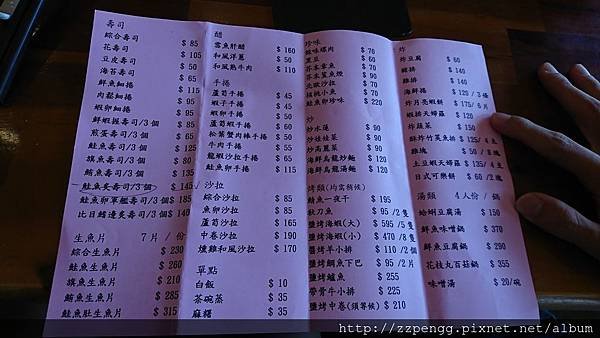 壽司
綜合壽司 $ 85
花壽司 $ 105
豆皮壽司 $ 50
海苔壽司 $ 85
鮮魚細捲 $ 115
內鬆細捲 $ 95
蝦卵細捲 $ 95
鮮蝦握壽司/3個 $ 85
煎蛋壽司/3個 $ 65
旗魚壽司/3個 $ 80
鮪魚壽司/3個 $ 115
鮭魚炙壽司/3個 $ 145
鮭魚卵軍艦壽司/3個 $ 185
比目鰭邊炙壽司/3個 $ 190
生魚片 7片/份
綜合生魚片 $ 230
鮭魚生魚片 $ 260
旗魚生魚片 $ 210
鮪魚生魚片 $ 285
鮭魚肚生魚片 $ 315
醋
雲魚肝醋 $ 160
和風洋蔥 $ 50
和風熟牛肉 $ 110
手捲
蘆筍手捲 $ 45
蝦子手捲 $ 45
蝦卵手捲 $ 50
蘆筍蝦手捲 $ 60
松葉蟹肉棒手捲 $ 60
牛肉手捲 $ 55
龍蝦沙拉手捲 $ 65
鮭魚卵手捲 $ 115
沙拉
綜合沙拉 $ 85
魚卵沙拉 $ 85
蘆筍沙拉 $ 165
中卷沙拉 $ 190
燻雞和風沙拉 $ 170
單點
白飯 $ 10
茶碗蒸 $ 35
麻糬 $ 35
珍味
綜味螺肉 $ 70
黑豆 $ 60
芥末章魚 $ 70
芥末鯊魚煙 $ 90
北歐沙拉 $ 70
胡桃小魚 $ 70
鮭魚卵珍味 $ 220
炒
炒水蓮 $ 90
炒娃娃菜 $ 90
炒高麗菜 $ 90
海鮮烏龍炒麵 $ 120
海鮮烏龍湯麵 $ 120
烤類(均需稍候)
鮭魚一夜干 $ 195
秋刀魚 $ 95/2隻
鹽烤海蝦(大) $ 595/5隻
鹽烤海蝦(小) $ 470/8隻
鹽烤羊小排 $ 110/2支
鹽烤鯛魚下巴 $ 95/2片
鹽烤鱸魚 $ 255
帶骨牛小排 $ 225
鹽烤中卷(須等候) $ 210
炸
炸豆腐 $ 60
豬排 $ 140
雞排 $ 140
海鮮捲 $ 120/3條
炸月亮蝦餅 $ 175/6片
蝦捲天婦羅 $ 120
炸蔬菜 $ 150
酥炸竹莢魚排 $ 125/4支
雞塊 $ 50/8塊
土豆蝦天婦羅 $ 135/4支
日式可樂餅 $ 60/2塊
湯類 4人份/鍋
蛤蜊豆腐湯 $ 150
鮮魚味噌鍋 $ 300
鮮魚豆腐鍋 $ 290
花枝丸百菇鍋 $ 355
味噌湯 $ 20/碗
http://zzpengg.pixnet.net/album